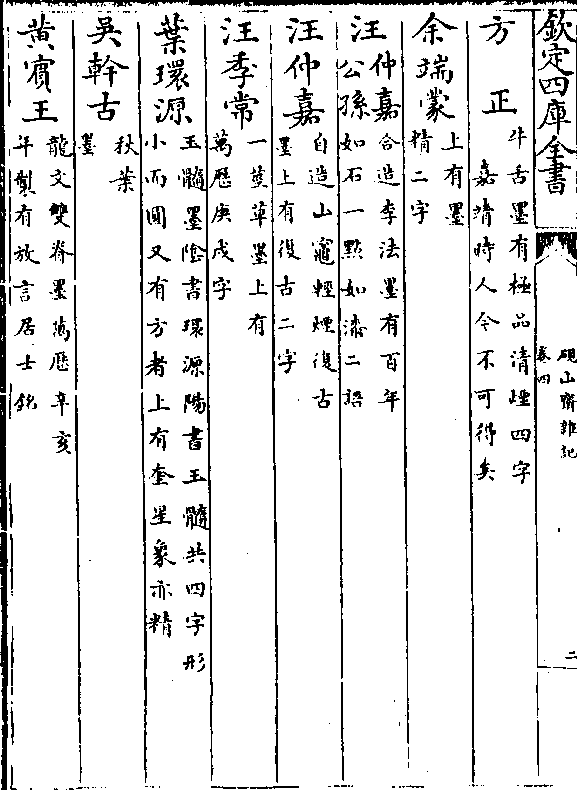 欽定四庫全書
硯山齋雜記
卷四
二
方正
牛舌墨有極品清煙四字
嘉靖時人今不可得矣
余端蒙
上有墨
精二字
汪仲嘉
公孫
合造李法墨有百年
如石一點如漆二語
汪仲嘉
自造山竈輕煙復古
墨上有復古二字
汪季常
一莖草墨上有
萬厯庚戌字
葉環源
玉髓墨陰書環源陽書玉髓共四字形
小而圓又有方者上有奎星象亦精
吳幹古
秋葉
墨
黃賓王
龍文雙脊墨萬厯辛亥
年製有放言居士銘